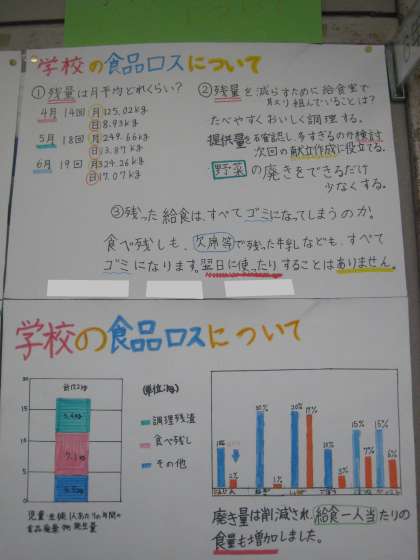 学校の食品ロスについて
①残量は月平均どれくらい?
4月 14回 月125.02kg
日8.93kg
5月 18回 月249.66kg
日13.87kg
6月 19回 月324.26kg
日17.07kg
②残量を減らすために給食室で
取り組んでいることは?
たべやすくおいしく調理する。
提供量を確認し、多すぎるのか検討
次回の献立作成に役立てる。
野菜の廃きをできるだけ
少なくする。
③残った給食は、すべてゴミになってしまうのか。
食べ残しも、欠席等で残った牛乳なども、すべて
ゴミになります。翌日に使ったりすることはありません。
学校の食品ロスについて
(単位:kg)
調理残渣
食べ残し
その他
7.1kg
児童・生徒1人あたりの年間の
20%
20%
17%
15%
15%
7%
6%
2%
1%
廃き量は削減され、給食一人当たりの
食量も増加しました。